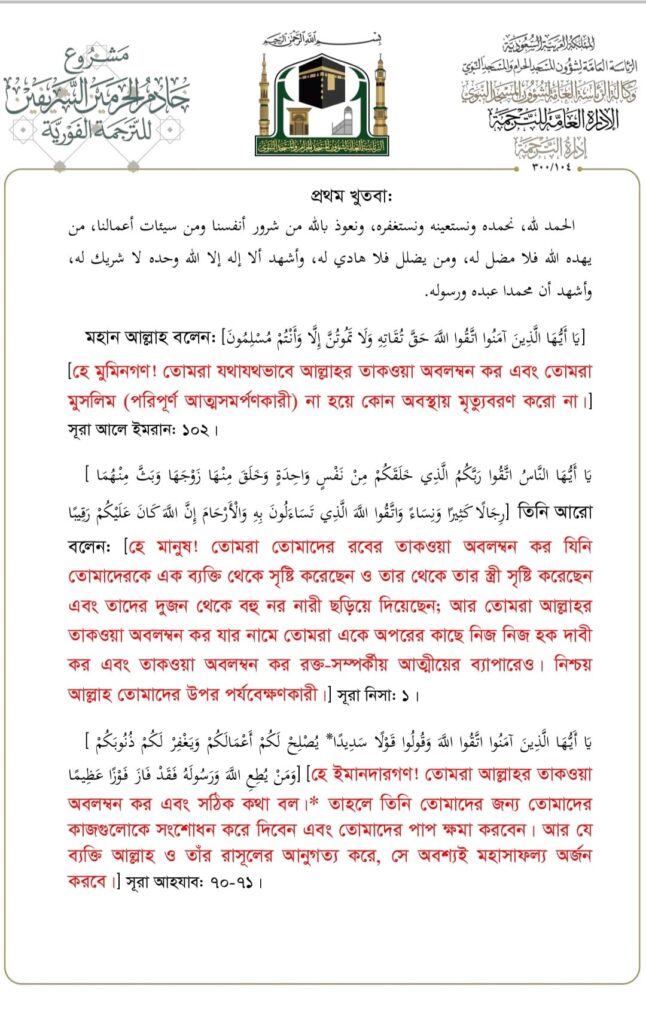 مشروع
خادم الحرمين الشريفين
للترجمة الفورية
بسم الله الرحمن الرحيم
الرئاسة العامة لشؤون المسجد الحرام والمسجد النبوي
المملكة العربية السعودية
الرئاسة العامة لشؤون المسجد الحرام والمسجد النبوي
وكالة الرئاسة العامة لشؤون المسجد النبوي
الإدارة العامة للترجمة
إدارة الترجمة
٣٠٠/١٠٤
প্রথম খুতবা:
الحمد لله، نحمده ونستعينه ونستغفره، ونعوذ بالله من شرور أنفسنا ومن سيئات أعمالنا، من
يهده الله فلا مضل له، ومن يضلل فلا هادي له، وأشهد ألا إله إلا الله وحده لا شريك له،
وأشهد أن محمدا عبده ورسوله.
মহান আল্লাহ বলেন: [يَا أَيُّهَا الَّذِينَ آمَنُوا اتَّقُوا اللَّهَ حَقَّ تُقَاتِهِ وَلَا تَمُوتُنَّ إِلَّا وَأَنْتُمْ مُسْلِمُونَ]
[হে মুমিনগণ! তোমরা যথাযথভাবে আল্লাহর তাকওয়া অবলম্বন কর এবং তোমরা
মুসলিম (পরিপূর্ণ আত্মসমর্পণকারী) না হয়ে কোন অবস্থায় মৃত্যুবরণ করো না।]
সূরা আলে ইমরান: ১০২।
يَا أَيُّهَا النَّاسُ اتَّقُوا رَبَّكُمُ الَّذِي خَلَقَكُمْ مِنْ نَفْسٍ وَاحِدَةٍ وَخَلَقَ مِنْهَا زَوْجَهَا وَبَثَّ مِنْهُمَا ]
[رِجَالًا كَثِيرًا وَنِسَاءً وَاتَّقُوا اللَّهَ الَّذِي تَسَاءَلُونَ بِهِ وَالْأَرْحَامَ إِنَّ اللَّهَ كَانَ عَلَيْكُمْ رَقِيبًا তিনি আরো
বলেন: [হে মানুষ! তোমরা তোমাদের রবের তাকওয়া অবলম্বন কর যিনি
তোমাদেরকে এক ব্যক্তি থেকে সৃষ্টি করেছেন ও তার থেকে তার স্ত্রী সৃষ্টি করেছেন
এবং তাদের দুজন থেকে বহু নর নারী ছড়িয়ে দিয়েছেন; আর তোমরা আল্লাহর
তাকওয়া অবলম্বন কর যার নামে তোমরা একে অপরের কাছে নিজ নিজ হক দাবী
কর এবং তাকওয়া অবলম্বন কর রক্ত-সম্পর্কীয় আত্মীয়ের ব্যাপারেও। নিশ্চয়
আল্লাহ তোমাদের উপর পর্যবেক্ষণকারী।] সূরা নিসা: ১।
يَا أَيُّهَا الَّذِينَ آمَنُوا اتَّقُوا اللَّهَ وَقُولُوا قَوْلًا سَدِيدًا* يُصْلِحْ لَكُمْ أَعْمَالَكُمْ وَيَغْفِرْ لَكُمْ ذُنُوبَكُمْ ]
[وَمَنْ يُطِعِ اللَّهَ وَرَسُولَهُ فَقَدْ فَازَ فَوْزًا عَظِيمًا [হে ইমানদারগণ! তোমরা আল্লাহর তাকওয়া
অবলম্বন কর এবং সঠিক কথা বল।* তাহলে তিনি তোমাদের জন্য তোমাদের
কাজগুলোকে সংশোধন করে দিবেন এবং তোমাদের পাপ ক্ষমা করবেন। আর যে
ব্যক্তি আল্লাহ ও তাঁর রাসূলের আনুগত্য করে, সে অবশ্যই মহাসাফল্য অর্জন
করবে।] সূরা আহযাব: ৭০-৭১।